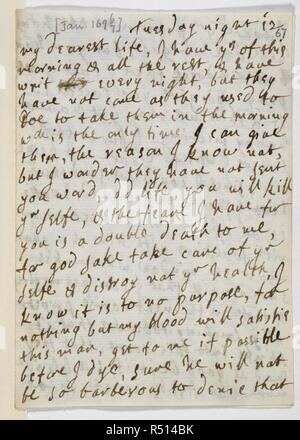 [Jan 1696/7]
Tuesday night 12
67
my dearest life, I have yrs of this
morning & all the rest, & have
writ every night, but they
have not came as they used to
doe to take them in the morning
wch is the only time I can give
them, the reason I know not,
but I wonder they have not sent
you word. dd life you will kill
yr selfe, & the feare I have for
you is a double death to me,
for god sake take care of yr
selfe & distroy not yr health, I
know it is to no purpose, for
nothing but my blood will satisfie
this man, get to me if possible
before I dye, sure he will not
be so barberous to denie that
alamy
Image ID: R514BK
www.alamy.com